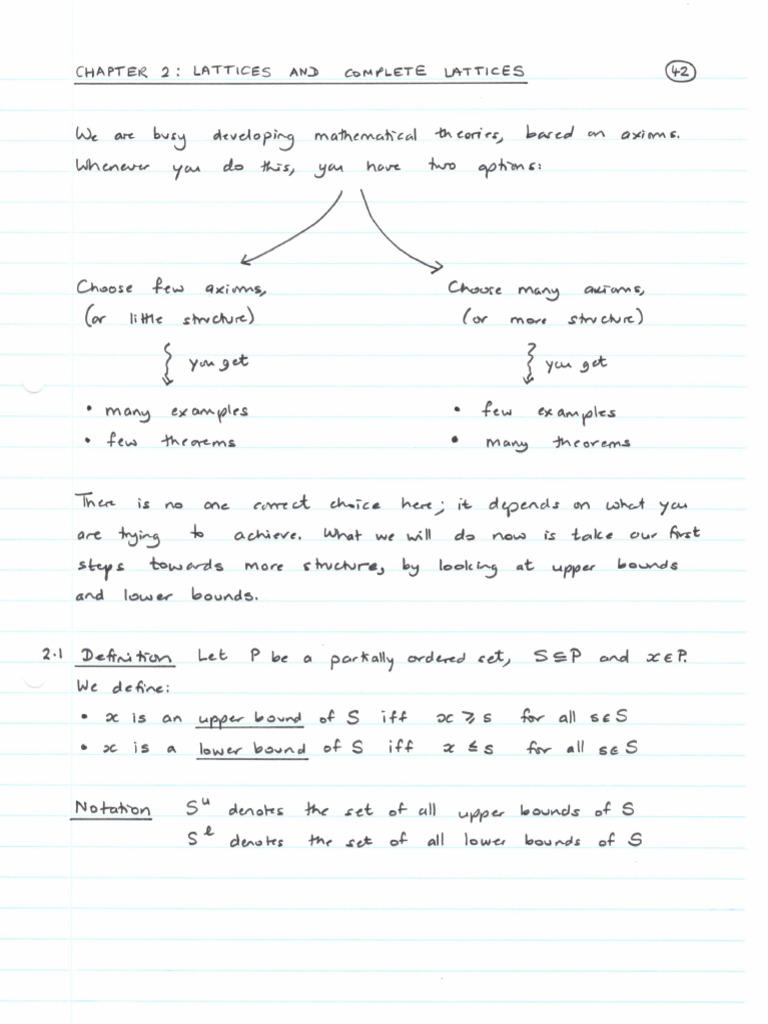 CHAPTER 2: LATTICES AND COMPLETE LATTICES 42
We are busy developing mathematical theories, based on axioms.
Whenever you do this, you have two options:
Choose few axioms,
(or little structure)
you get
• many examples
• few theorems
Choose many axioms,
(or more structure)
you get
• few examples
• many theorems
There is no one correct choice here; it depends on what you
are trying to achieve. What we will do now is take our first
steps towards more structure, by looking at upper bounds
and lower bounds.
2.1 Definition Let P be a partially ordered set, S⊆P and x∈P.
We define:
• x is an upper bound of S iff x ⩾ s for all s∈S
• x is a lower bound of S iff x ≤ s for all s∈S
Notation Sᵘ denotes the set of all upper bounds of S
Sˡ denotes the set of all lower bounds of S